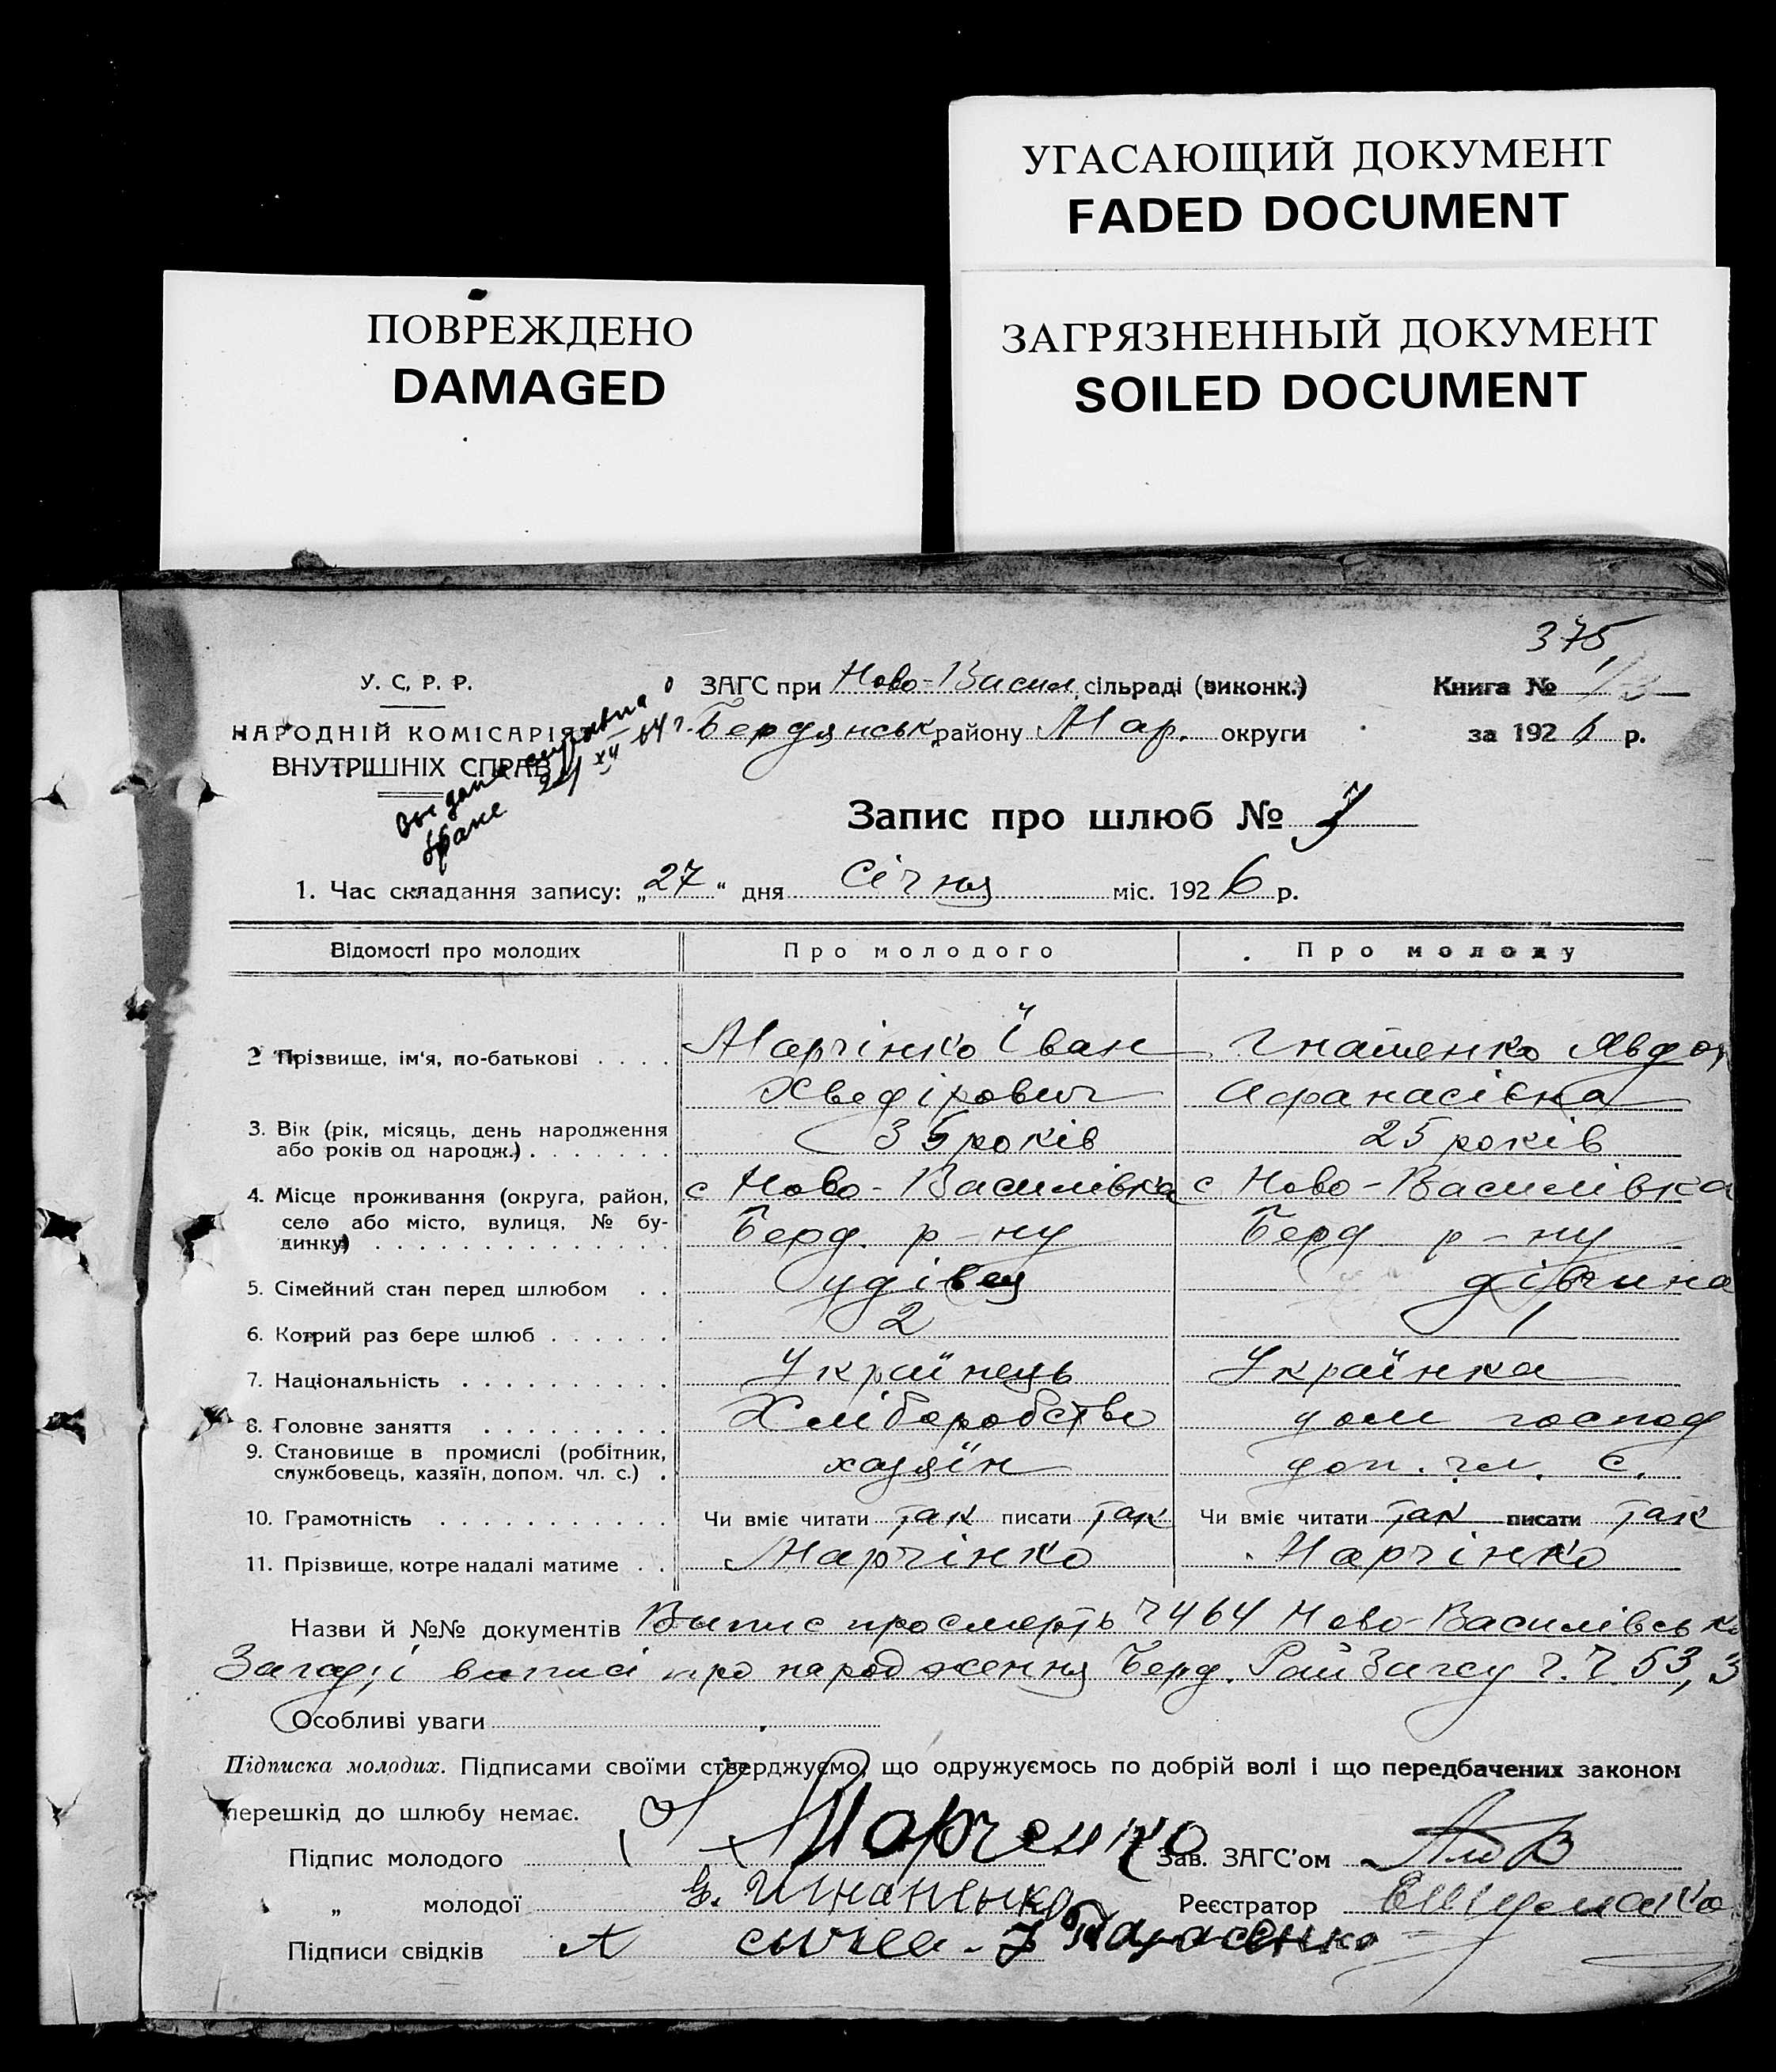 УГАСАЮЩИЙ ДОКУМЕНТ
FADED DOCUMENT
ПОВРЕЖДЕНО
DAMAGED
ЗАГРЯЗНЕННЫЙ ДОКУМЕНТ
SOILED DOCUMENT
375
У. С. Р. Р.
НАРОДНІЙ КОМІСАРІЯТ
ВНУТРІШНІХ СПРАВ
ЗАГС при Ново-Васил. сільраді (виконк.)
Бердянськ. району Мар. округи
Книга № 1/3
за 1926 р.
Запис про шлюб № 7
1. Час складання запису: „27“ дня Січня міс. 1926 р.
Відомості про молодих Про молодого Про молоду
2 Прізвище, ім'я, по-батькові . . . . Марчінко Їван Гнатенко Явдот
Хведірович Афанасієна
3. Вік (рік, місяць, день народження
або років од народж.) . . . . . . . 35 років 25 років
4. Місце проживання (округа, район, с Ново-Василівка с Ново-Василівка
село або місто, вулиця, № бу-
динку) . . . . . . . . . . . . . . Берд. р-ну Берд р-ну
5. Сімейний стан перед шлюбом . . удівец дівчина
6. Котрий раз бере шлюб . . . . . . 2 1
7. Національність . . . . . . . . . . Українець Українка
8. Головне заняття . . . . . . . . . Хліборобство дом господ
9. Становище в промислі (робітник,
службовець, хазяїн, допом. чл. с.) . хазяїн доп. чл. с.
10. Грамотність . . . . . . . . . . . Чи вміє читати так писати так Чи вміє читати так писати так
11. Прізвище, котре надалі матиме . . Марчінко Марчінко
Назви й №№ документів Випис про смерть Ч 464 Ново-Василівсько
Загсу, і виписі про народження Берд. РайЗагсу Ч.Ч. 53, 3
Особливі уваги
Підписка молодих. Підписами своїми стверджуємо, що одружуємось по добрій волі і що передбачених законом
перешкід до шлюбу немає.
Підпис молодого Марченко Зав. ЗАГС'ом
„ молодої Реєстратор
Підписи свідків